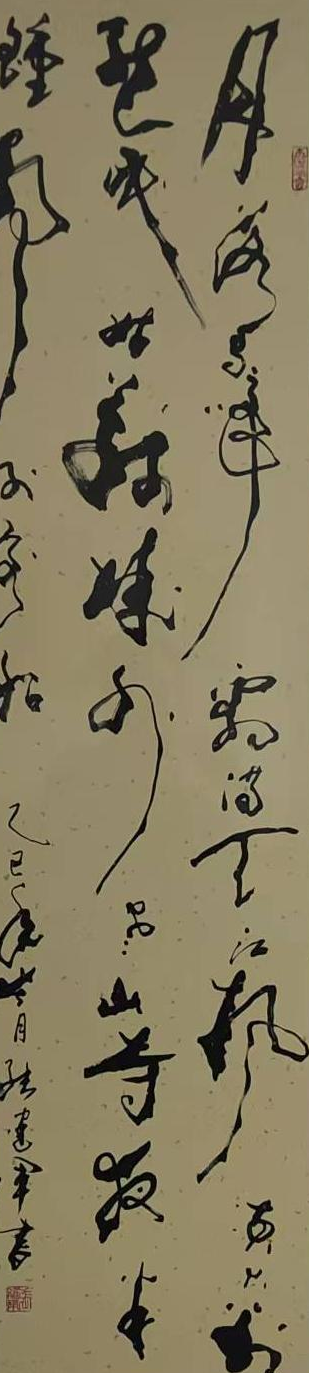 月落烏啼霜滿天江楓漁火對
愁眠姑蘇城外寒山寺夜半
鐘聲到客船 乙巳年月建軍書